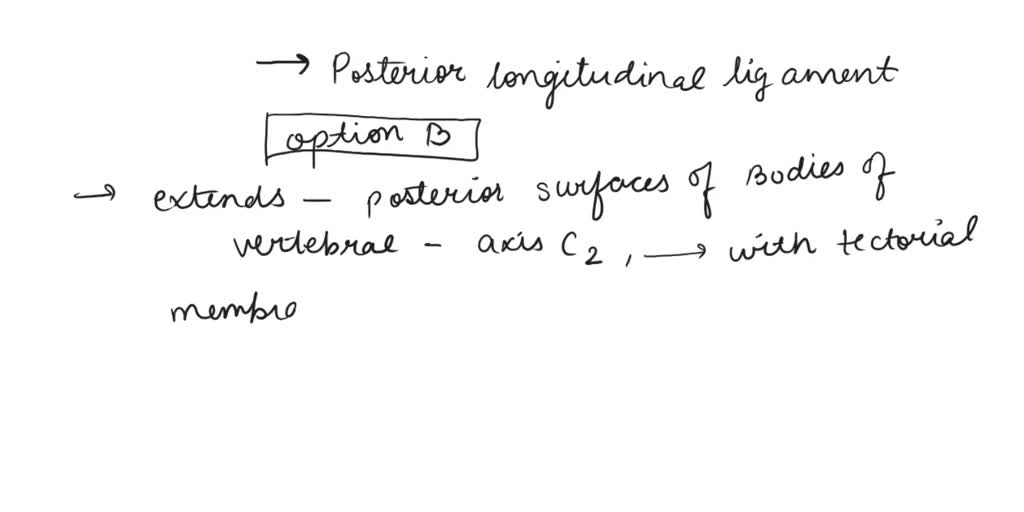 → Posterior longitudinal ligament
option B
→ extends - posterior surfaces of Bodies of
vertebrae - axis C2, → with tectorial
membra